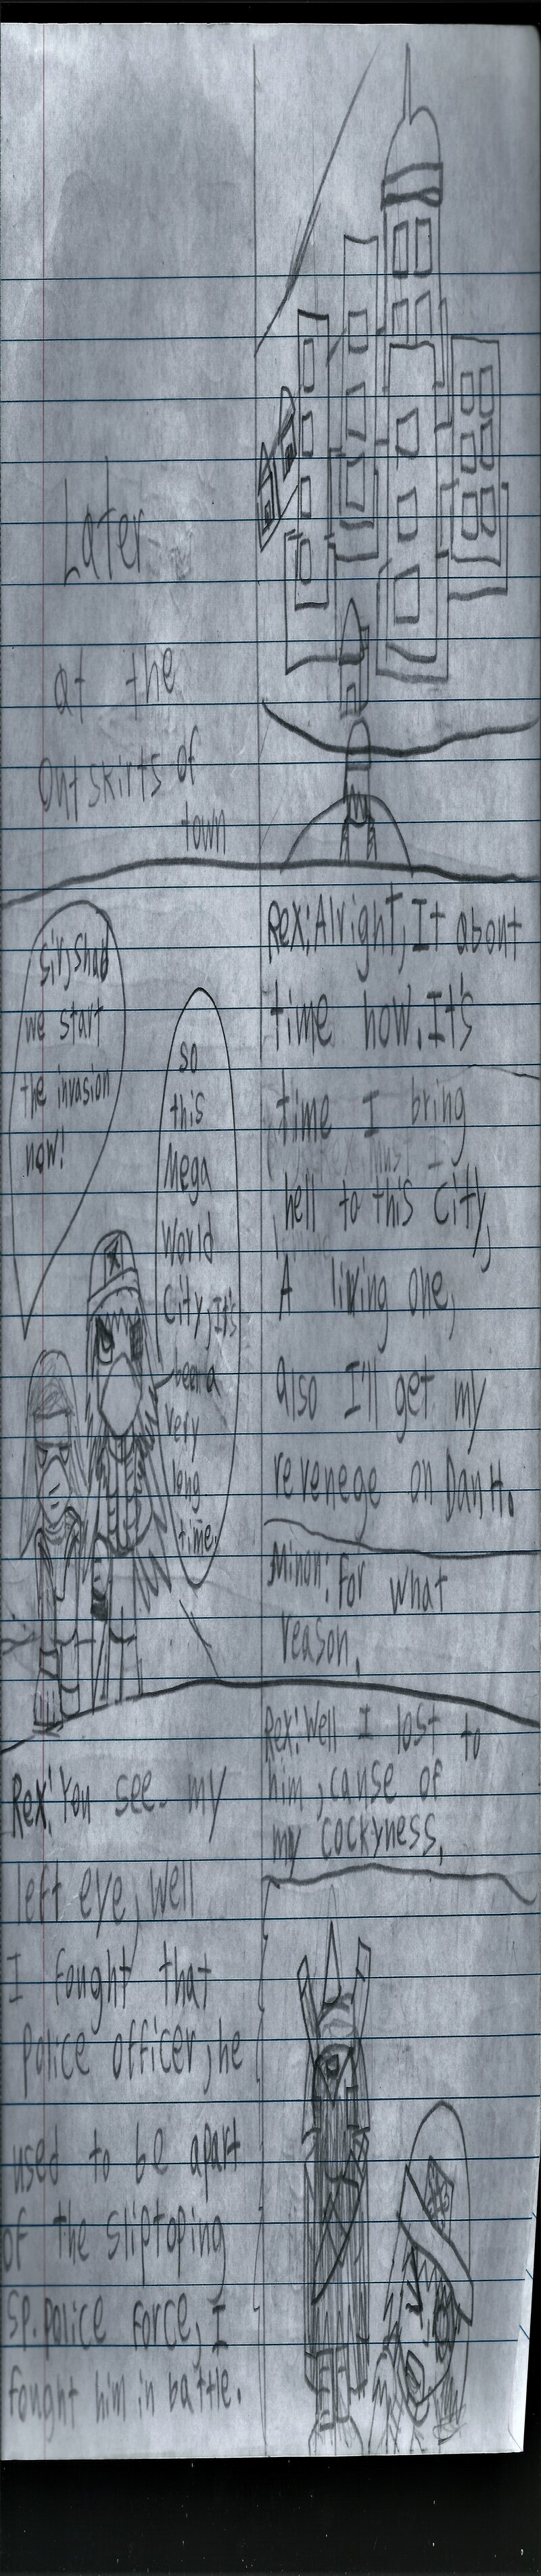 Later
at the
Outskirts of
town
Sir, Shall
we start
the invasion
now!
so
this
Mega
World
City, it's
been a
very
long
time.
Rex: Alright, It about
time now. It's
time I bring
hell to this City,
A living one,
also I'll get my
revenege on Dan H.
Minon: for what
reason.
Rex: You see my
left eye, well
I fought that
Police officer, he
used to be apart
of the sliptoping
SP. Police force, I
fought him in battle.
Rex: Well I lost to
him, cause of
my cockyness.